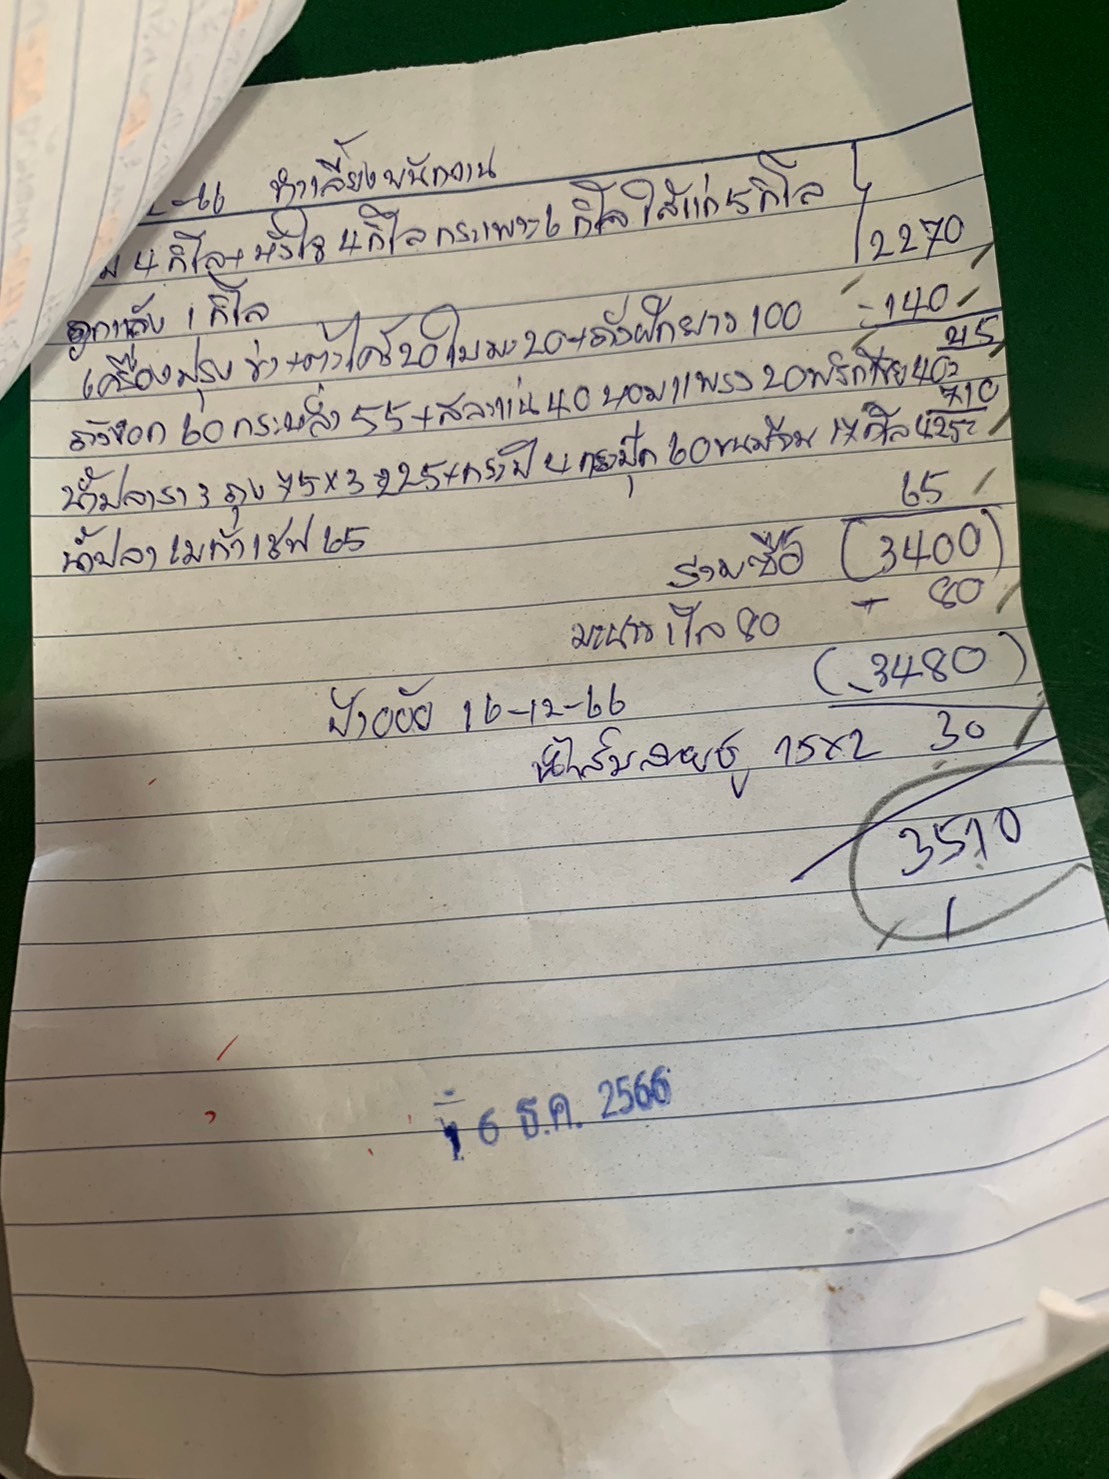 2-66 ทำเลี้ยงพนักงาน
4 กิโล+หัวใจ 4 กิโล กระเพาะ 6 กิโล ไส้แก่ 5 กิโล 2270
1 กิโล
เครื่องปรุง ข่า+ตะไคร้ 20 ใบมะ 20+ถั่วฝักยาว 100 = 140
215
ถั่วงอก 60 กระหล่ำ 55+สะระแหน่ 40 หอมแพรง 20 พริกไทย 40=
710
น้ำปลารา 3 ถุง 75x3=225+กะปิ 4 กระปุก 60 ขนมจีน 17 กิโล 425=
65
น้ำปลา เมก้าเชฟ 65
รวมซื้อ (3400)
มะนาว 1 โล 80 - 80
(3480)
ป้าออัย 16-12-66
น้ำส้มสายชู 15x2 30
3510
16 ธ.ค. 2566